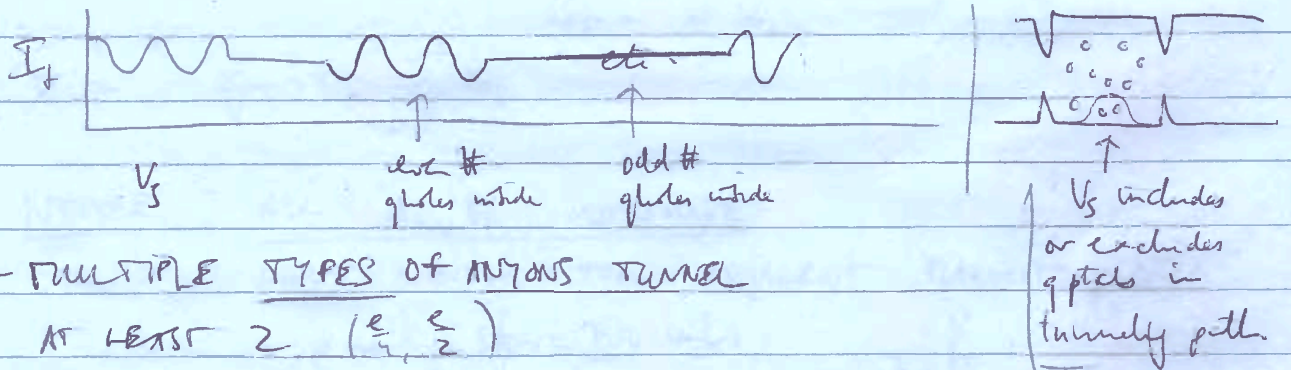 I_t
V_s
even #
qholes inside
odd #
qholes inside
V_s includes
or excludes
qptcls in
tunnelling path.
- MULTIPLE TYPES OF ANYONS TUNNEL
AT LEAST 2 (e/4, e/2)